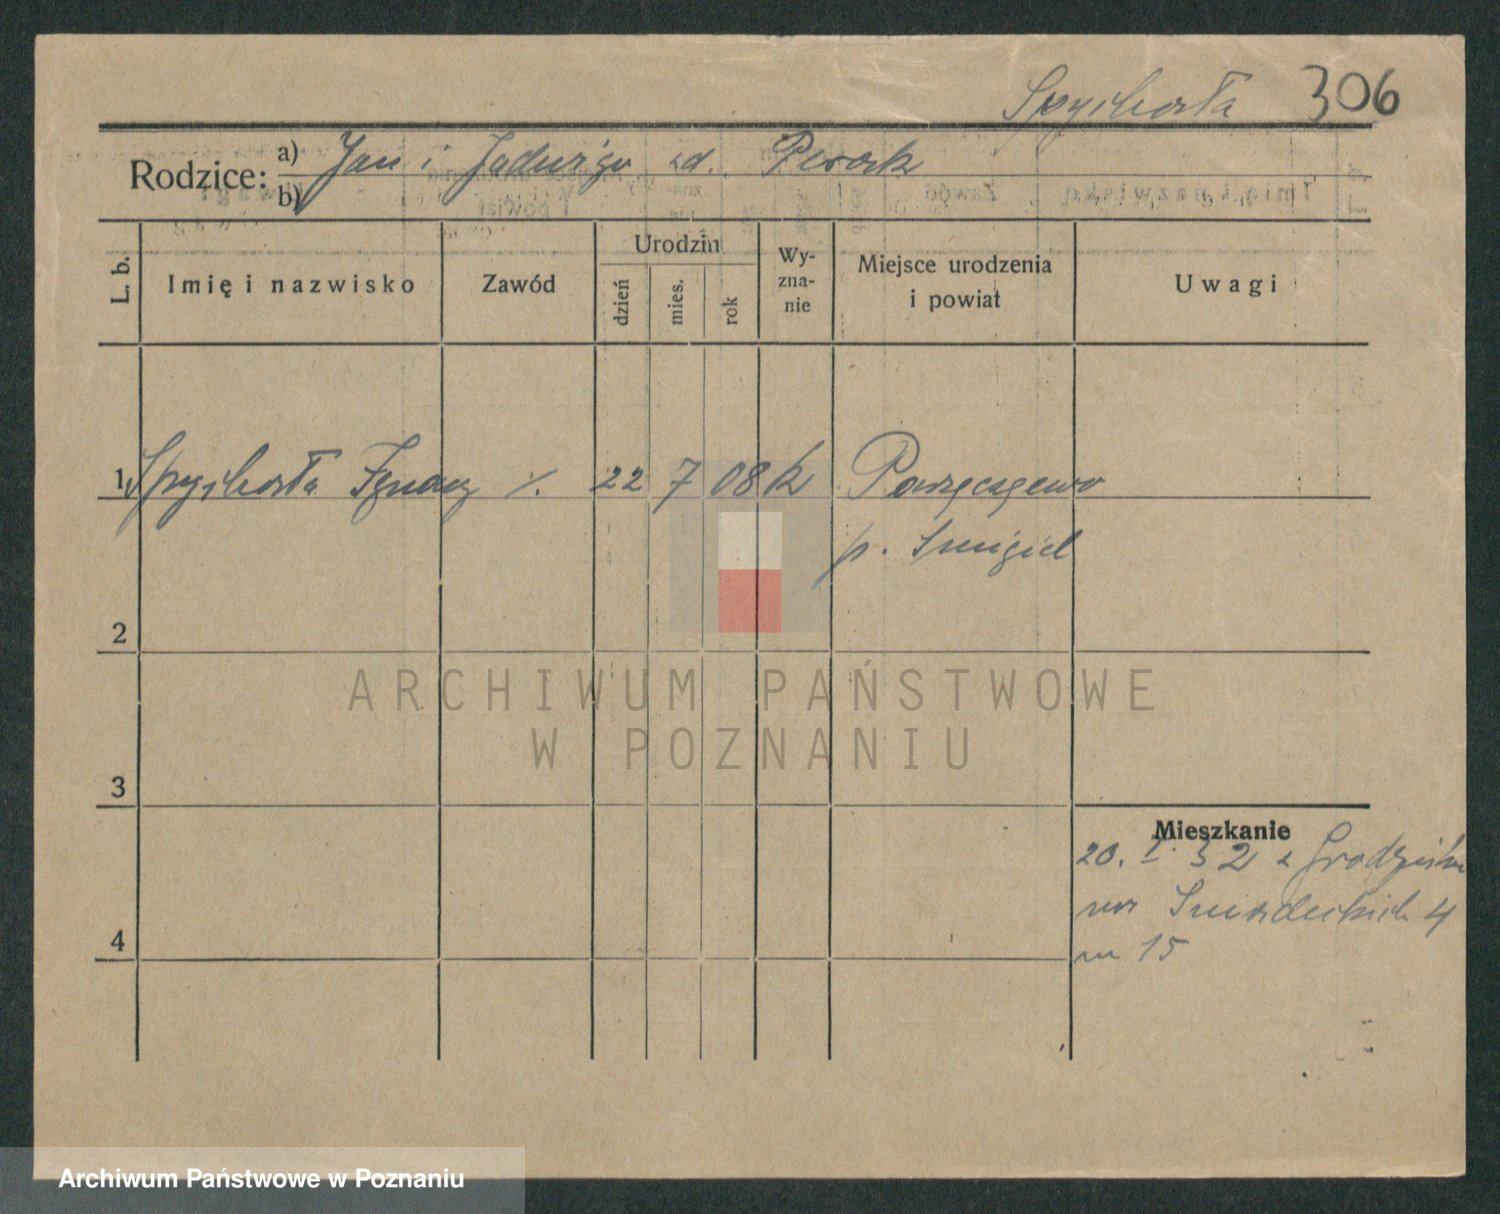 Spychała 306
Rodzice: a) Jan i Jadwiga zd.
b)
L. b. Imię i nazwisko Zawód Urodzin dzień mies. rok Wy-zna-nie Miejsce urodzenia i powiat Uwagi
1 Spychała Ignacy %. 22 7 08 k
p. Śmigiel
2
ARCHIWUM PAŃSTWOWE
W POZNANIU
3
Mieszkanie
20. I 32 z Grodziska
na Śniadeckich 4
4
m 15
Archiwum Państwowe w Poznaniu